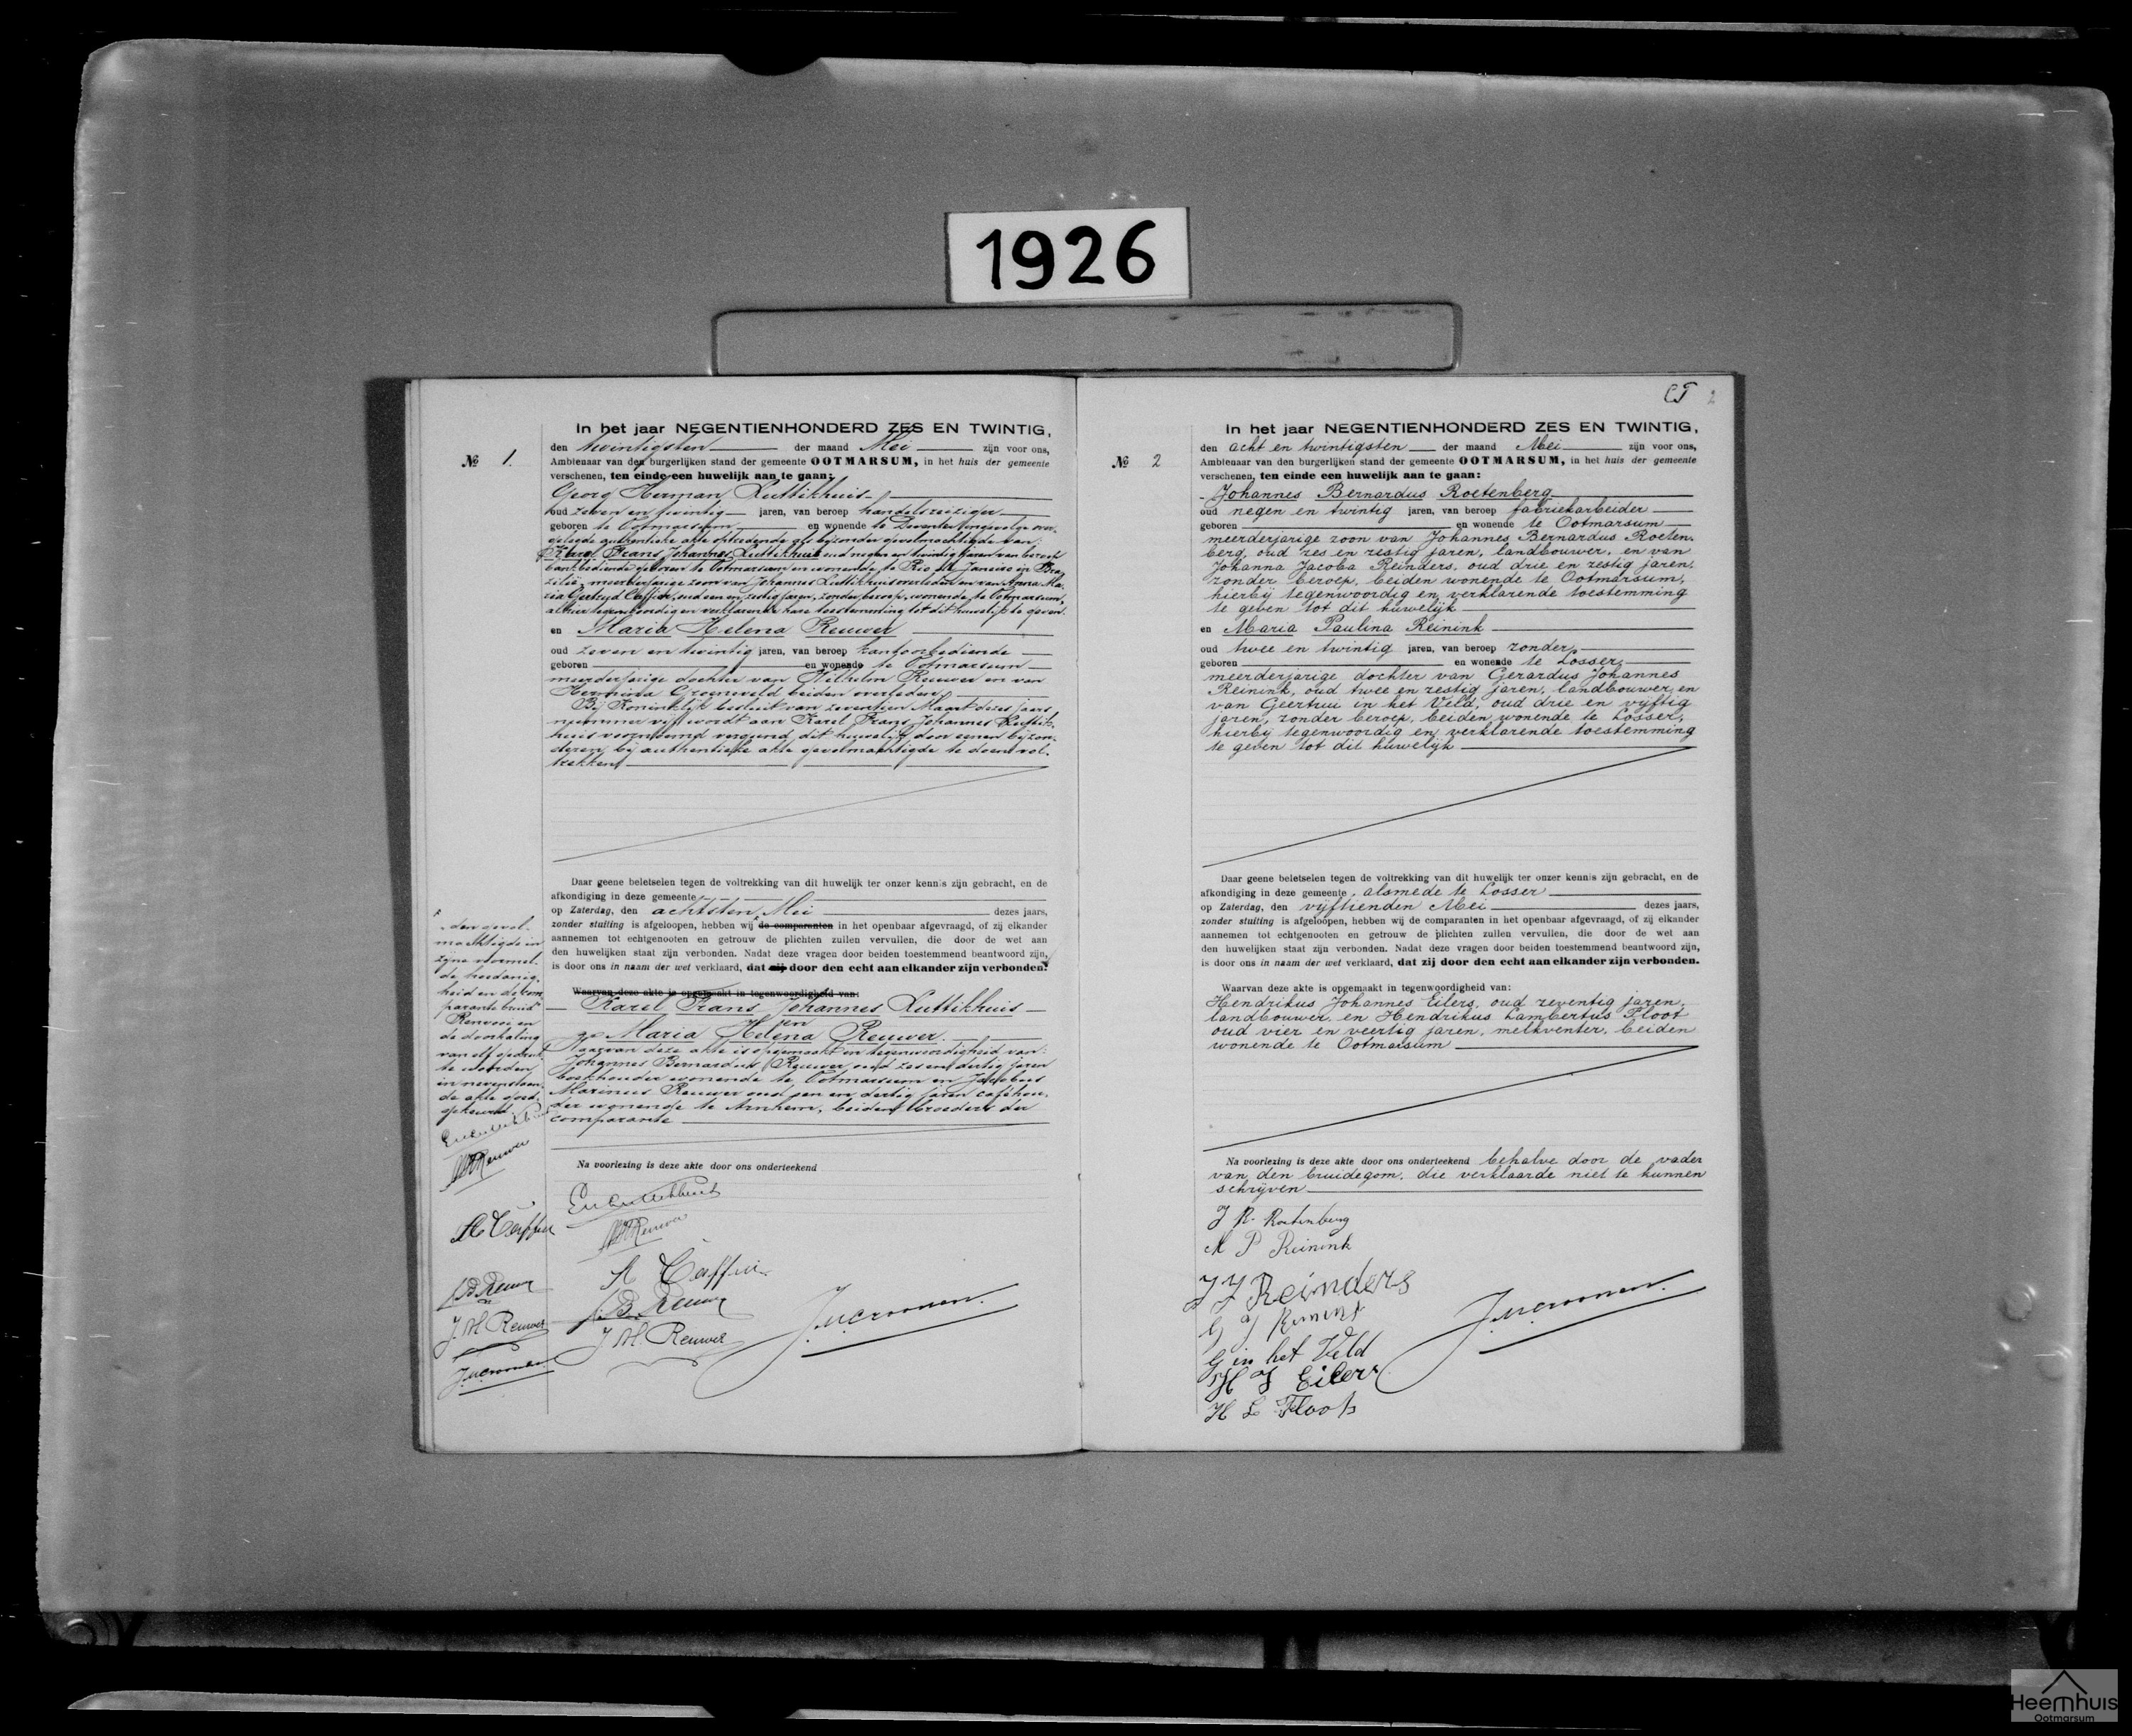 1926
In het jaar NEGENTIENHONDERD ZES EN TWINTIG,
den twintigsten der maand Mei zijn voor ons,
№ 1. Ambtenaar van den burgerlijken stand der gemeente OOTMARSUM, in het huis der gemeente
verschenen, ten einde een huwelijk aan te gaan:
Georg Herman Luttikhuis
oud zeven en twintig jaren, van beroep handelsreiziger
geboren te Ootmarsum en wonende te Deventer ingevolge over-
gelegde authentieke akte optredende als bijzonder gevolmachtigde van:
Karel Frans Johannes Luttikhuis oud negen en twintig jaren van beroep
bankbediende geboren te Ootmarsum en wonende te Rio de Janeiro in Bra-
zilië, meerderjarige zoon van Johannes Luttikhuis overleden en van Anna Ma-
ria Gertrud Caffier, oud een en zestig jaren, zonder beroep, wonende te Ootmarsum,
alhier tegenwoordig en verklarende hare toestemming tot dit huwelijk te geven.
en Maria Helena Reuwer
oud zeven en twintig jaren, van beroep kantoorbediende
geboren en wonende te Ootmarsum
meerderjarige dochter van Wilhelm Reuwer en van
Hermina Croeneveld beiden overleden.
Bij Koninklijk besluit van zeventien Maart dezes jaars
nummer vijf wordt aan Karel Frans Johannes Luttik-
huis voornoemd vergund dit huwelijk door eenen bijzon-
deren, bij authentieke akte gevolmachtigde te doen vol-
trekken
Daar geene beletselen tegen de voltrekking van dit huwelijk ter onzer kennis zijn gebracht, en de
afkondiging in deze gemeente
op Zaterdag, den achtsten Mei dezes jaars,
zonder stuiting is afgeloopen, hebben wij de comparanten in het openbaar afgevraagd, of zij elkander
aannemen tot echtgenooten en getrouw de plichten zullen vervullen, die door de wet aan
den huwelijken staat zijn verbonden. Nadat deze vragen door beiden toestemmend beantwoord zijn,
is door ons in naam der wet verklaard, dat zij door den echt aan elkander zijn verbonden:
Waarvan deze akte is opgemaakt in tegenwoordigheid van:
Karel Frans Johannes Luttikhuis
en
Maria Helena Reuwer.
Waarvan deze akte is opgemaakt in tegenwoordigheid van:
Johannes Bernardus Reuwer oud zes en dertig jaren
boekhouder wonende te Ootmarsum en Jacobus
Marinus Reuwer oud een en dertig jaren caféhou-
der wonende te Arnhem, beiden broeders der
comparante
den gevol-
machtigde in
zijne voormel-
de hoedanig-
heid en de com-
parante bruid
Renvooi en
de doorhaling
van elf gedruk-
te woorden
in nevenstaan-
de akte goed-
gekeurd.
Na voorlezing is deze akte door ons onderteekend
A Caffier
J B Reuwer
J. M. Reuwer
2
In het jaar NEGENTIENHONDERD ZES EN TWINTIG,
den acht en twintigsten der maand Mei zijn voor ons,
№ 2 Ambtenaar van den burgerlijken stand der gemeente OOTMARSUM, in het huis der gemeente
verschenen, ten einde een huwelijk aan te gaan:
Johannes Bernardus Roetenberg
oud negen en twintig jaren, van beroep fabriekarbeider
geboren en wonende te Ootmarsum
meerderjarige zoon van Johannes Bernardus Roeten-
berg, oud zes en zestig jaren, landbouwer, en van
Johanna Jacoba Reinders, oud drie en zestig jaren,
zonder beroep, beiden wonende te Ootmarsum,
hierbij tegenwoordig en verklarende toestemming
te geven tot dit huwelijk
en Maria Paulina Reinink
oud twee en twintig jaren, van beroep zonder
geboren en wonende te Losser,
meerderjarige dochter van Gerardus Johannes
Reinink, oud twee en zestig jaren, landbouwer, en
van Geertrui in het Veld, oud drie en vijftig
jaren, zonder beroep, beiden wonende te Losser,
hierbij tegenwoordig en verklarende toestemming
te geven tot dit huwelijk
Daar geene beletselen tegen de voltrekking van dit huwelijk ter onzer kennis zijn gebracht, en de
afkondiging in deze gemeente, alsmede te Losser
op Zaterdag, den vijftienden Mei dezes jaars,
zonder stuiting is afgeloopen, hebben wij de comparanten in het openbaar afgevraagd, of zij elkander
aannemen tot echtgenooten en getrouw de plichten zullen vervullen, die door de wet aan
den huwelijken staat zijn verbonden. Nadat deze vragen door beiden toestemmend beantwoord zijn,
is door ons in naam der wet verklaard, dat zij door den echt aan elkander zijn verbonden.
Waarvan deze akte is opgemaakt in tegenwoordigheid van:
Hendrikus Johannes Eilers, oud zeventig jaren,
landbouwer, en Hendrikus Lambertus Floot
oud vier en veertig jaren, melkventer, beiden
wonende te Ootmarsum
Na voorlezing is deze akte door ons onderteekend behalve door de vader
van den bruidegom, die verklaarde niet te kunnen
schrijven
J B Roetenberg
M P Reinink
J J Reinders
G J Reinink
G in het Veld
H J Eilers
H L Floot
Heemhuis
Ootmarsum